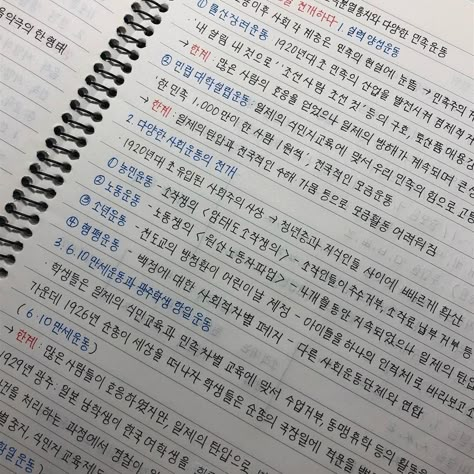 전개하다 | 실력 양성운동
① 물산장려운동 1920년대 초 민족의 산업을 발전시켜 경제적
'내 살림 내 것으로' '조선사람 조선 것' 등의 구호, 토산품애용
→ 한계: 많은 사람의 호응을 얻었으나 일제의 방해가 계속되며
② 민립 대학설립운동: 일제의 식민지교육에 맞서 우리 민족의 힘으로 고등
'한 민족 1,000만이 한 사람 1원씩', 전국적인 모금운동
→ 한계: 일제의 탄압과 전국적인 수해 가뭄 등으로 모금활동 어려워짐
2. 다양한 사회운동의 전개
1920년대 초 유입된 사회주의 사상 → 청년층과 지식인들 사이에 빠르게 확산
① 농민운동 - 소작쟁의 <암태도 소작쟁의> - 소작인들이 추수거부, 소작료 납부 거부
② 노동운동 - 노동쟁의 <원산 노동자파업> - 4개월 동안 지속되었으나 일제의 탄
③ 소년운동 - 천도교의 방정환이 어린이날 제정 - 아이들을 하나의 인격체로 바라보고
④ 형평운동 - 백정에 대한 사회적차별 폐지 - 다른 사회운동단체와 연합
3. 6.10 만세운동과 광주학생 항일운동
학생들은 일제의 식민교육과 민족차별 교육에 맞서 수업거부, 동맹휴학 등의 활동
가운데 1926년 순종이 세상을 떠나자 학생들은 순종의 국장일에
(6.10 만세운동)
→ 한계: 많은 사람들이 호응하였지만, 일제의 탄압으로
1929년 광주: 일본 남학생이 한국 여학생을
건을 처리하는 과정에서 경찰이
식민지 교육제도